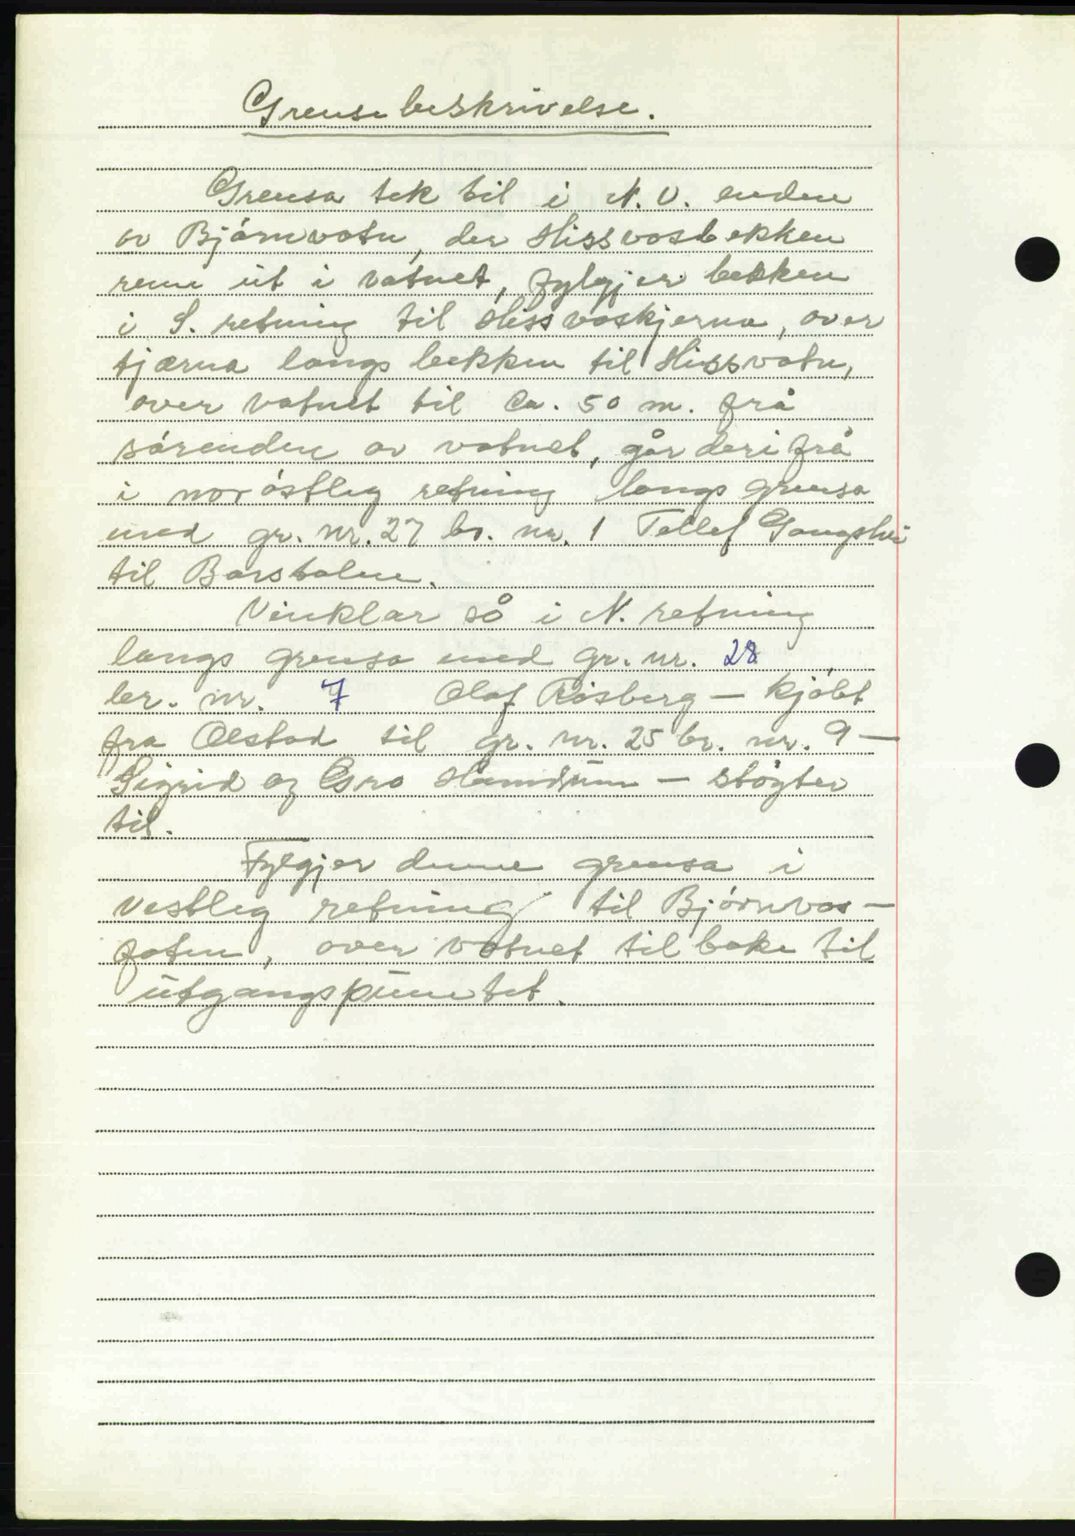 Grensebeskrivelse.
Grensa tek til i N.V. enden
av Bjørnvatn, der Hissvasbekken
renn ut i vatnet, fylgjer bekken
i S. retning til Hissvaskjerna, over
tjærna langs bekken til Hissvatn,
over vatnet til ca. 50 m. frå
sørenden av vatnet, går derifrå
i norøstleg retning langs grensa
med gr. nr. 27 br. nr. 1 Tellef
til Barstolen.
Vinklar så i N. retning
langs grensa med gr. nr. 28
br. nr. 7 Olaf Risberg – kjöbt
fra Ølstad til gr. nr. 25 br. nr. 9 –
Sigrid og – støyter
til.
Fylgjer denne grensa i
vestleg retning til Bjørnvas-
foten, over vatnet tilbake til
utgangspunctet.